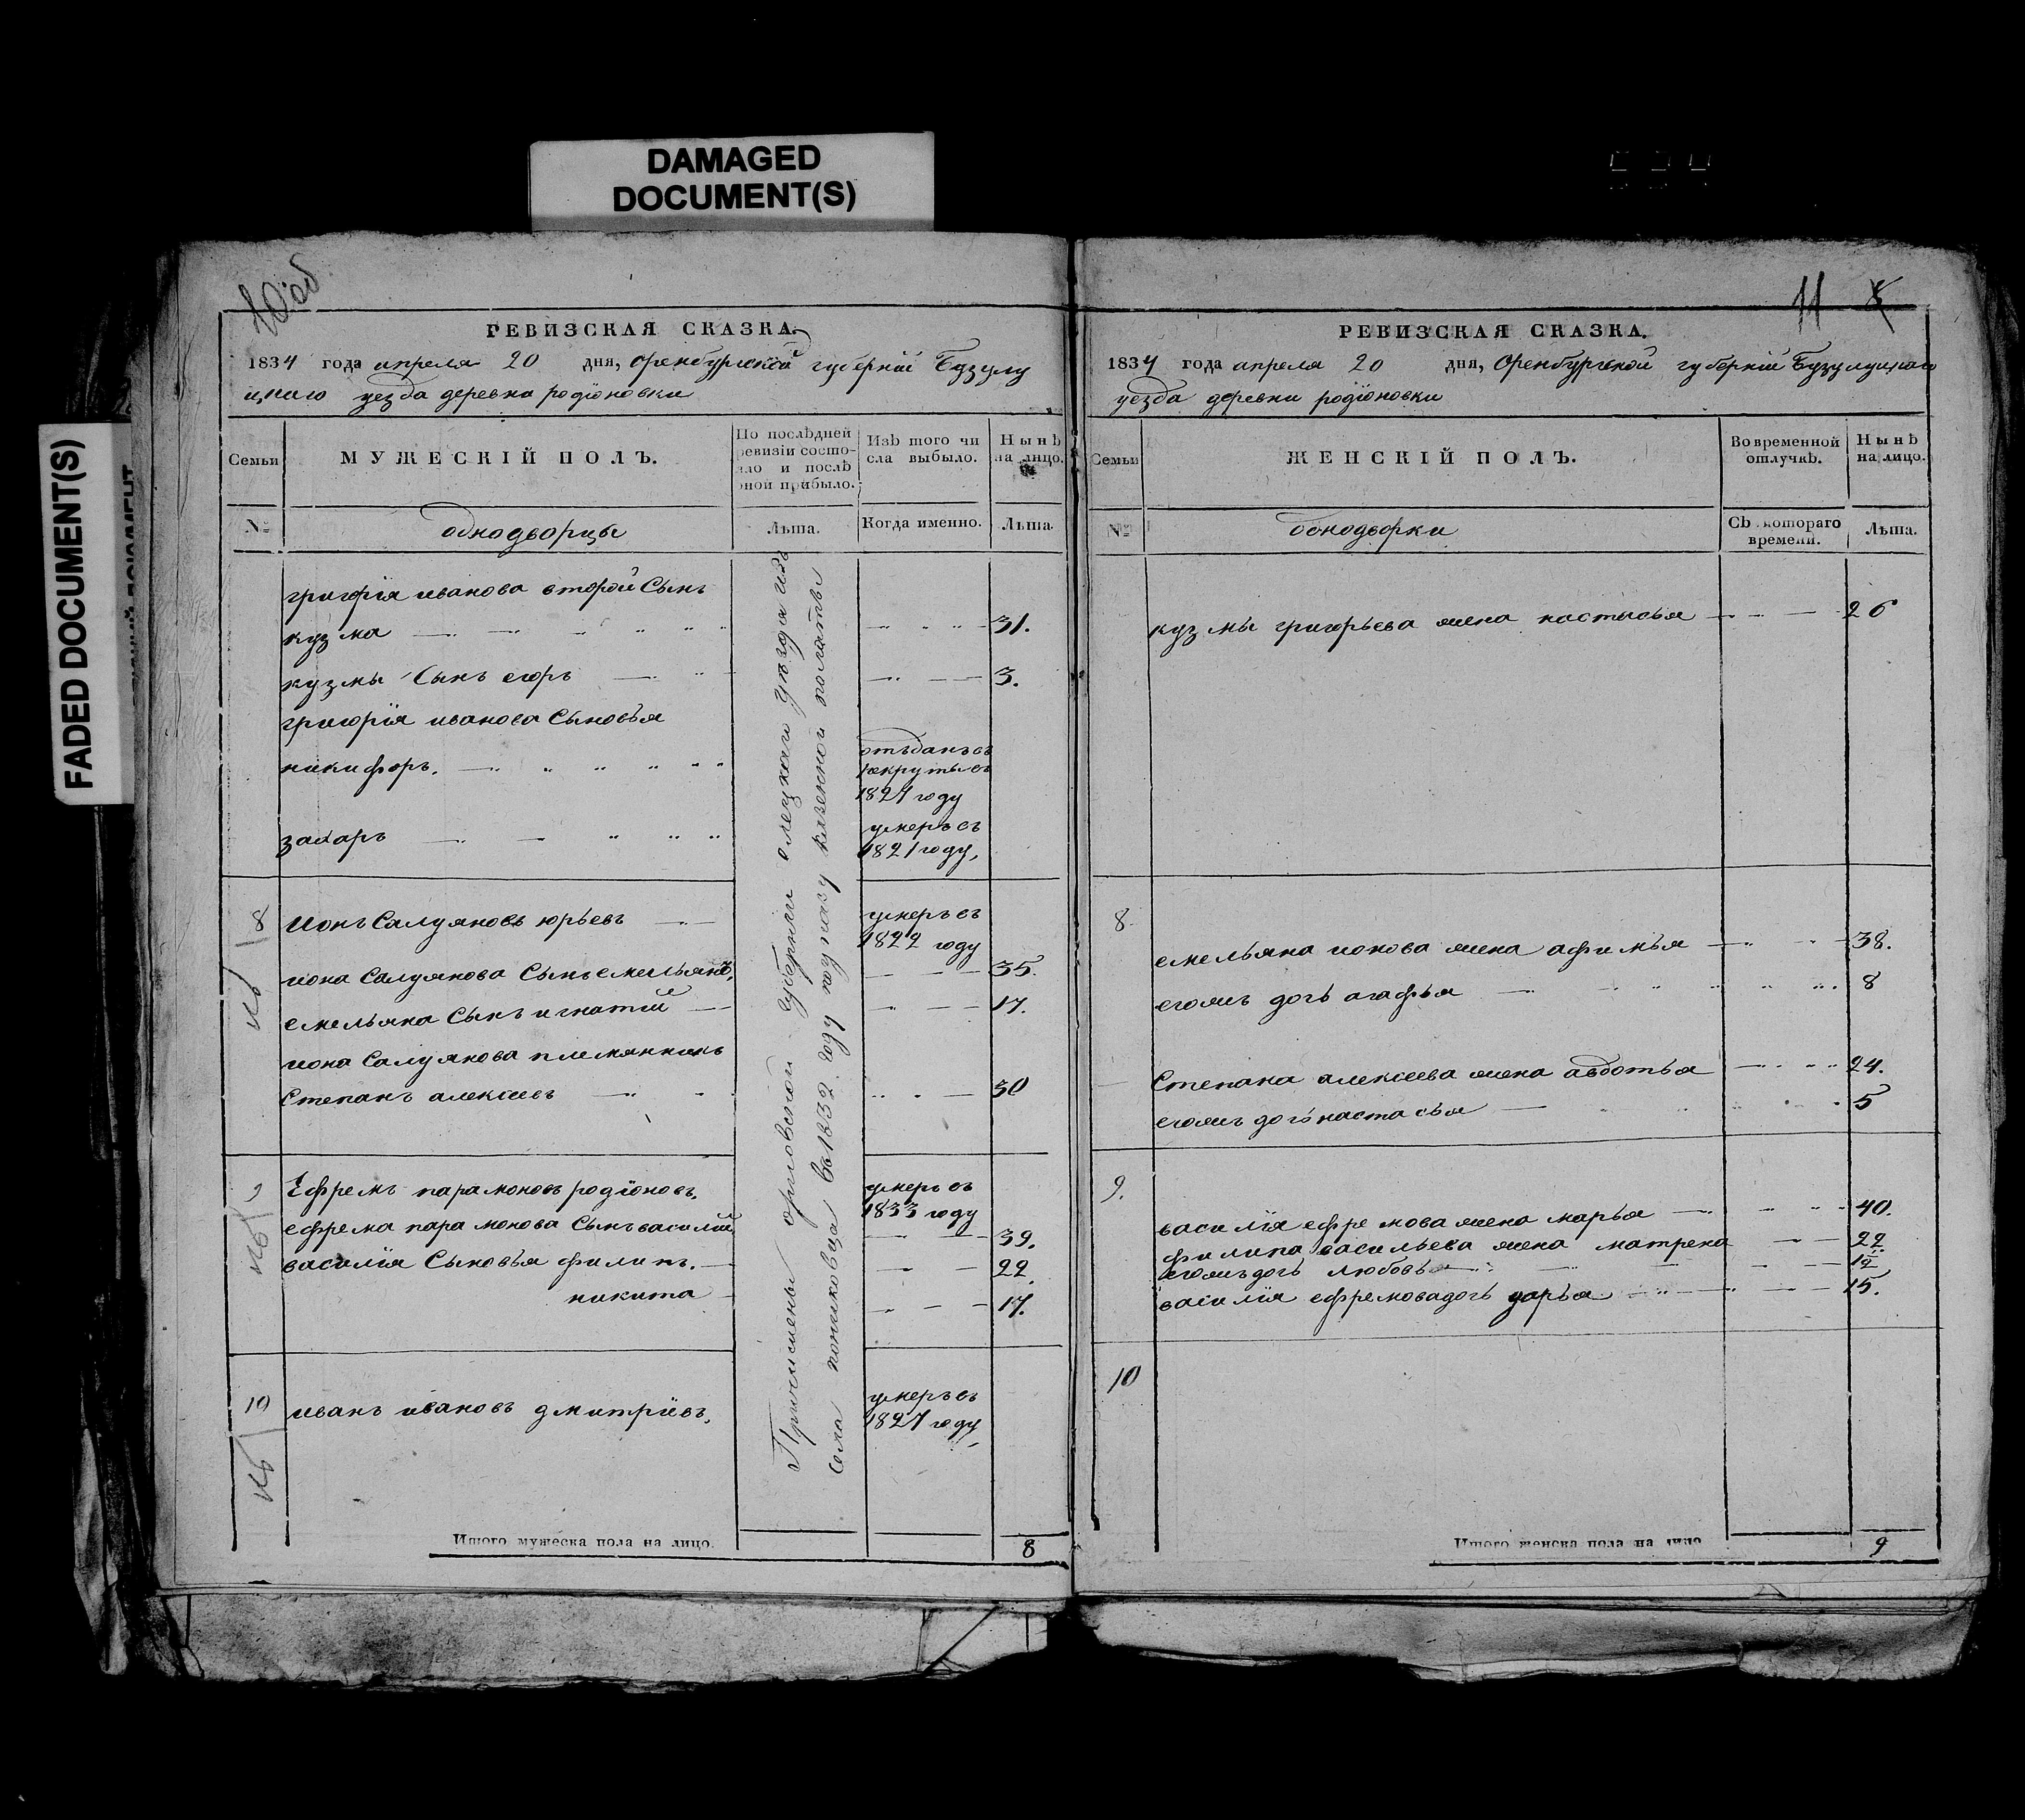 DAMAGED
DOCUMENT(S)
FADED DOCUMENT(S)
10 об
РЕВИЗСКАЯ СКАЗКА.
1834 года апреля 20 дня, Оренбургской губернiи Бузулу
цкаго уезда деревни родiоновки
Семьи
МУЖЕСКІЙ ПОЛЪ.
По послѣдней
ревизіи состо-
яло и послѣ
оной прибыло.
Изъ того чи
сла выбыло.
Нынѣ
на лицо.
№
однодворцы
Лѣта.
Когда именно.
Лѣта.
григорiя иванова второй Сынъ
кузма 31.
кузмы Сынъ егоръ 3.
григорiя иванова Сыновья
никифоръ. отъданъ въ
рекруты въ
1827 году
захаръ умеръ въ
1821 году,
8 Ионъ Салуяновъ юрьевъ умеръ въ
1822 году
иона Салуянова Сынъ емельянъ, 35.
емельяна Сынъ игнатiй 17.
иона Салуянова племянникъ
Степанъ алексеевъ 30
9 Ефремъ парамоновъ родiоновъ, умеръ въ
1833 году
ефрема парамонова Сынъ василiй, 39.
василiя Сыновья филипъ. 22.
никита 17.
10 иванъ ивановъ дмитрiевъ, умеръ въ
1827 году
Причислены орловской губернiи елецкаго уѣзда изъ
села пониковца въ 1832 году по указу казенной палаты
Итого мужеска пола на лицо. 8
11
РЕВИЗСКАЯ СКАЗКА.
1834 года апреля 20 дня, Оренбургской губернiи Бузулуцкаго
уезда деревни родiоновки
Семьи
ЖЕНСКІЙ ПОЛЪ.
Во временной
отлучкѣ.
Нынѣ
на лицо.
№
однодворки
Съ котораго
времени.
Лѣта.
кузмы григорьева жена настасья 26
8
емельяна ионова жена афимья 38.
егожъ дочь агафья 8
Степана алексеева жена авдотья 24.
егожъ дочь настасья 5
9.
василiя ефремова жена марья 40.
филипа васильева жена матрена 22.
егожъ дочь любовь 1/2
василiя ефремова дочь дарья 15.
10
Итого женска пола на лицо 9